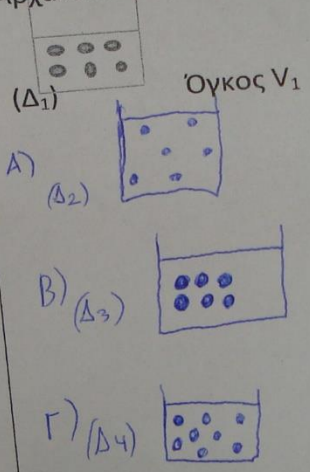 (Δ₁)
Όγκος V₁
Α)
(Δ₂)
Β)
(Δ₃)
Γ)
(Δ4)